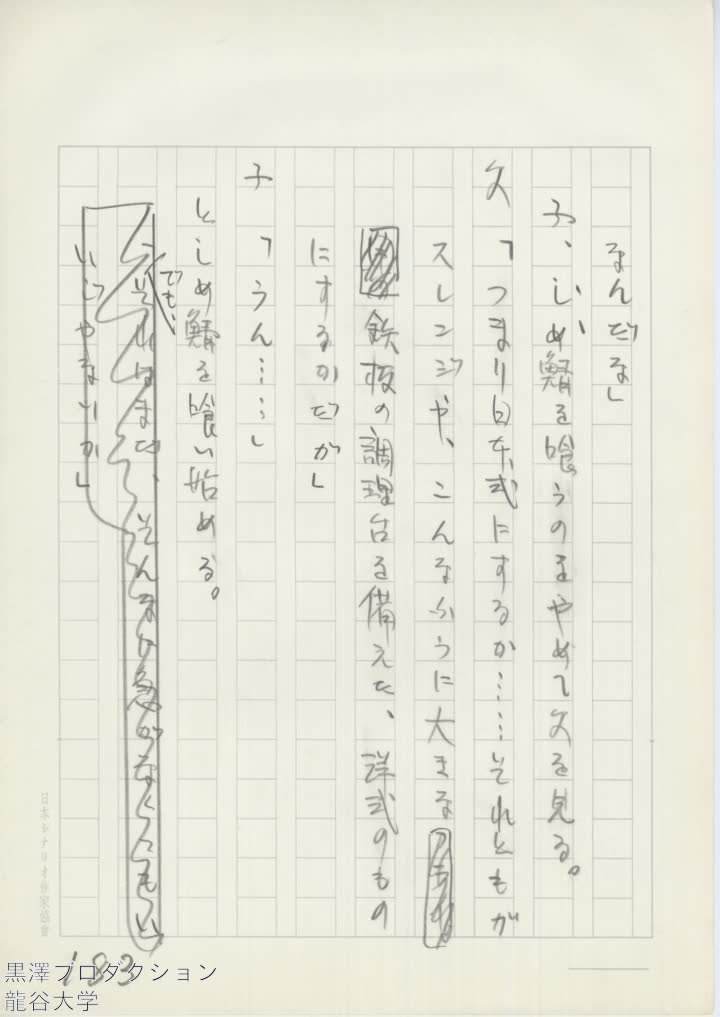 なんだな」
子、しめ鯖を喰うのをやめて父を見る。
父「つまり日本式にするか……それともが
スレンジや、こんなふうに大きな
鉄板の調理台を備えた、洋式のもの
にするかだが」
子「うん……」
としめ鯖を喰い始める。
でも、
それはまだ、そんなに急がなくともい
いじやないか」
日本シナリオ作家協會
183
黒澤プロダクション
龍谷大学